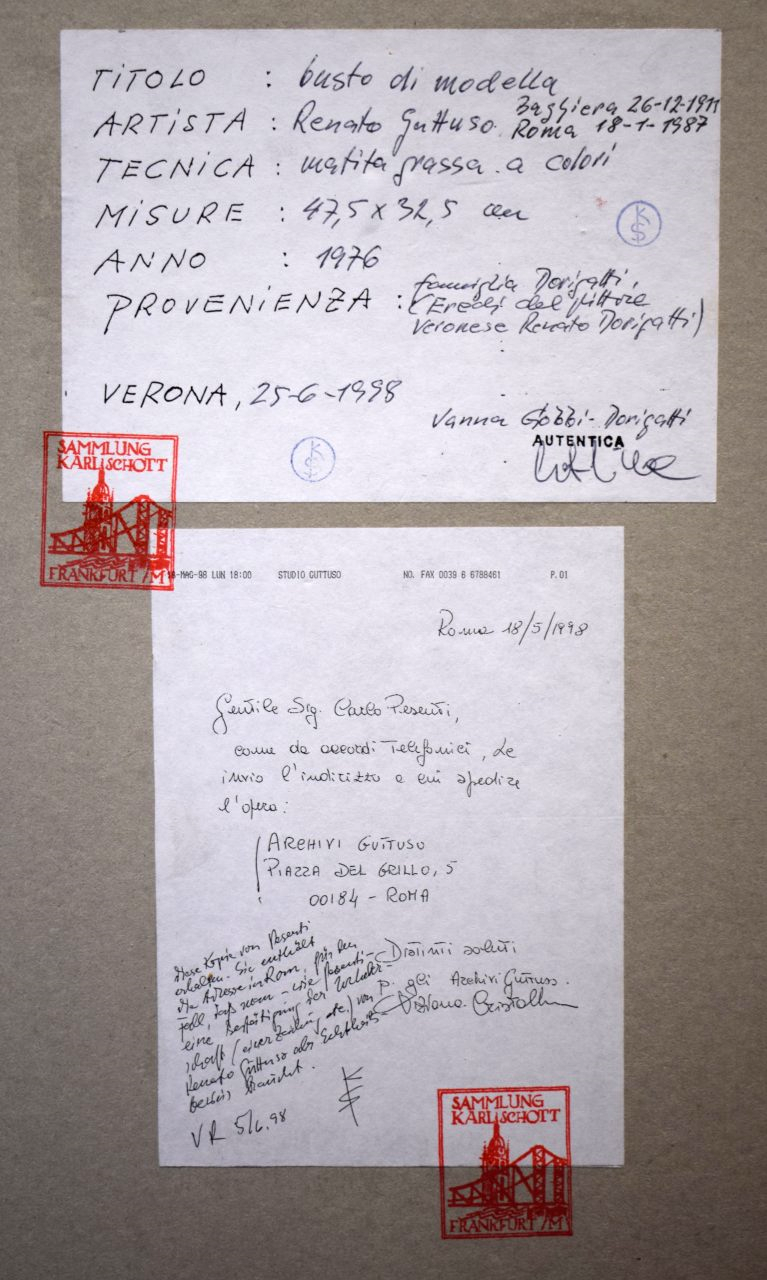 TITOLO : busto di modella
ARTISTA : Renato Guttuso Baghiera 26-12-1911
Roma 18-1-1987
TECNICA : matita grassa a colori
MISURE : 47,5 x 32,5 cm
KS
ANNO : 1976
PROVENIENZA : famiglia Dorigatti,
(Eredi del pittore
Veronese Renato Dorigatti)
VERONA, 25-6-1998
Vanna Gobbi-Dorigatti
AUTENTICA
KS
SAMMLUNG
KARL SCHOTT
FRANKFURT/M
18-MAG-98 LUN 18:00 STUDIO GUTTUSO NO. FAX 0039 6 6788461 P.01
Roma 18/5/1998
Gentile Sig. Carlo Pesenti,
come da accordi Telefonici, Le
invio l'indirizzo a cui spedire
l'opera:
ARCHIVI GUTTUSO
PIAZZA DEL GRILLO, 5
00184 - ROMA
Distinti saluti
p. gli Archivi Guttuso.
Diese Kopie von Pesenti
erhalten. Sie enthält
die Adresse in Rom, für den
Fall, daß man - wie Pesenti -
eine Bestätigung der Urheber-
schaft (einer Zeichnung etc.) von
Renato Guttuso als Echtheits-
beweis braucht.
VR 5/6.98
KS
SAMMLUNG
KARL SCHOTT
FRANKFURT/M